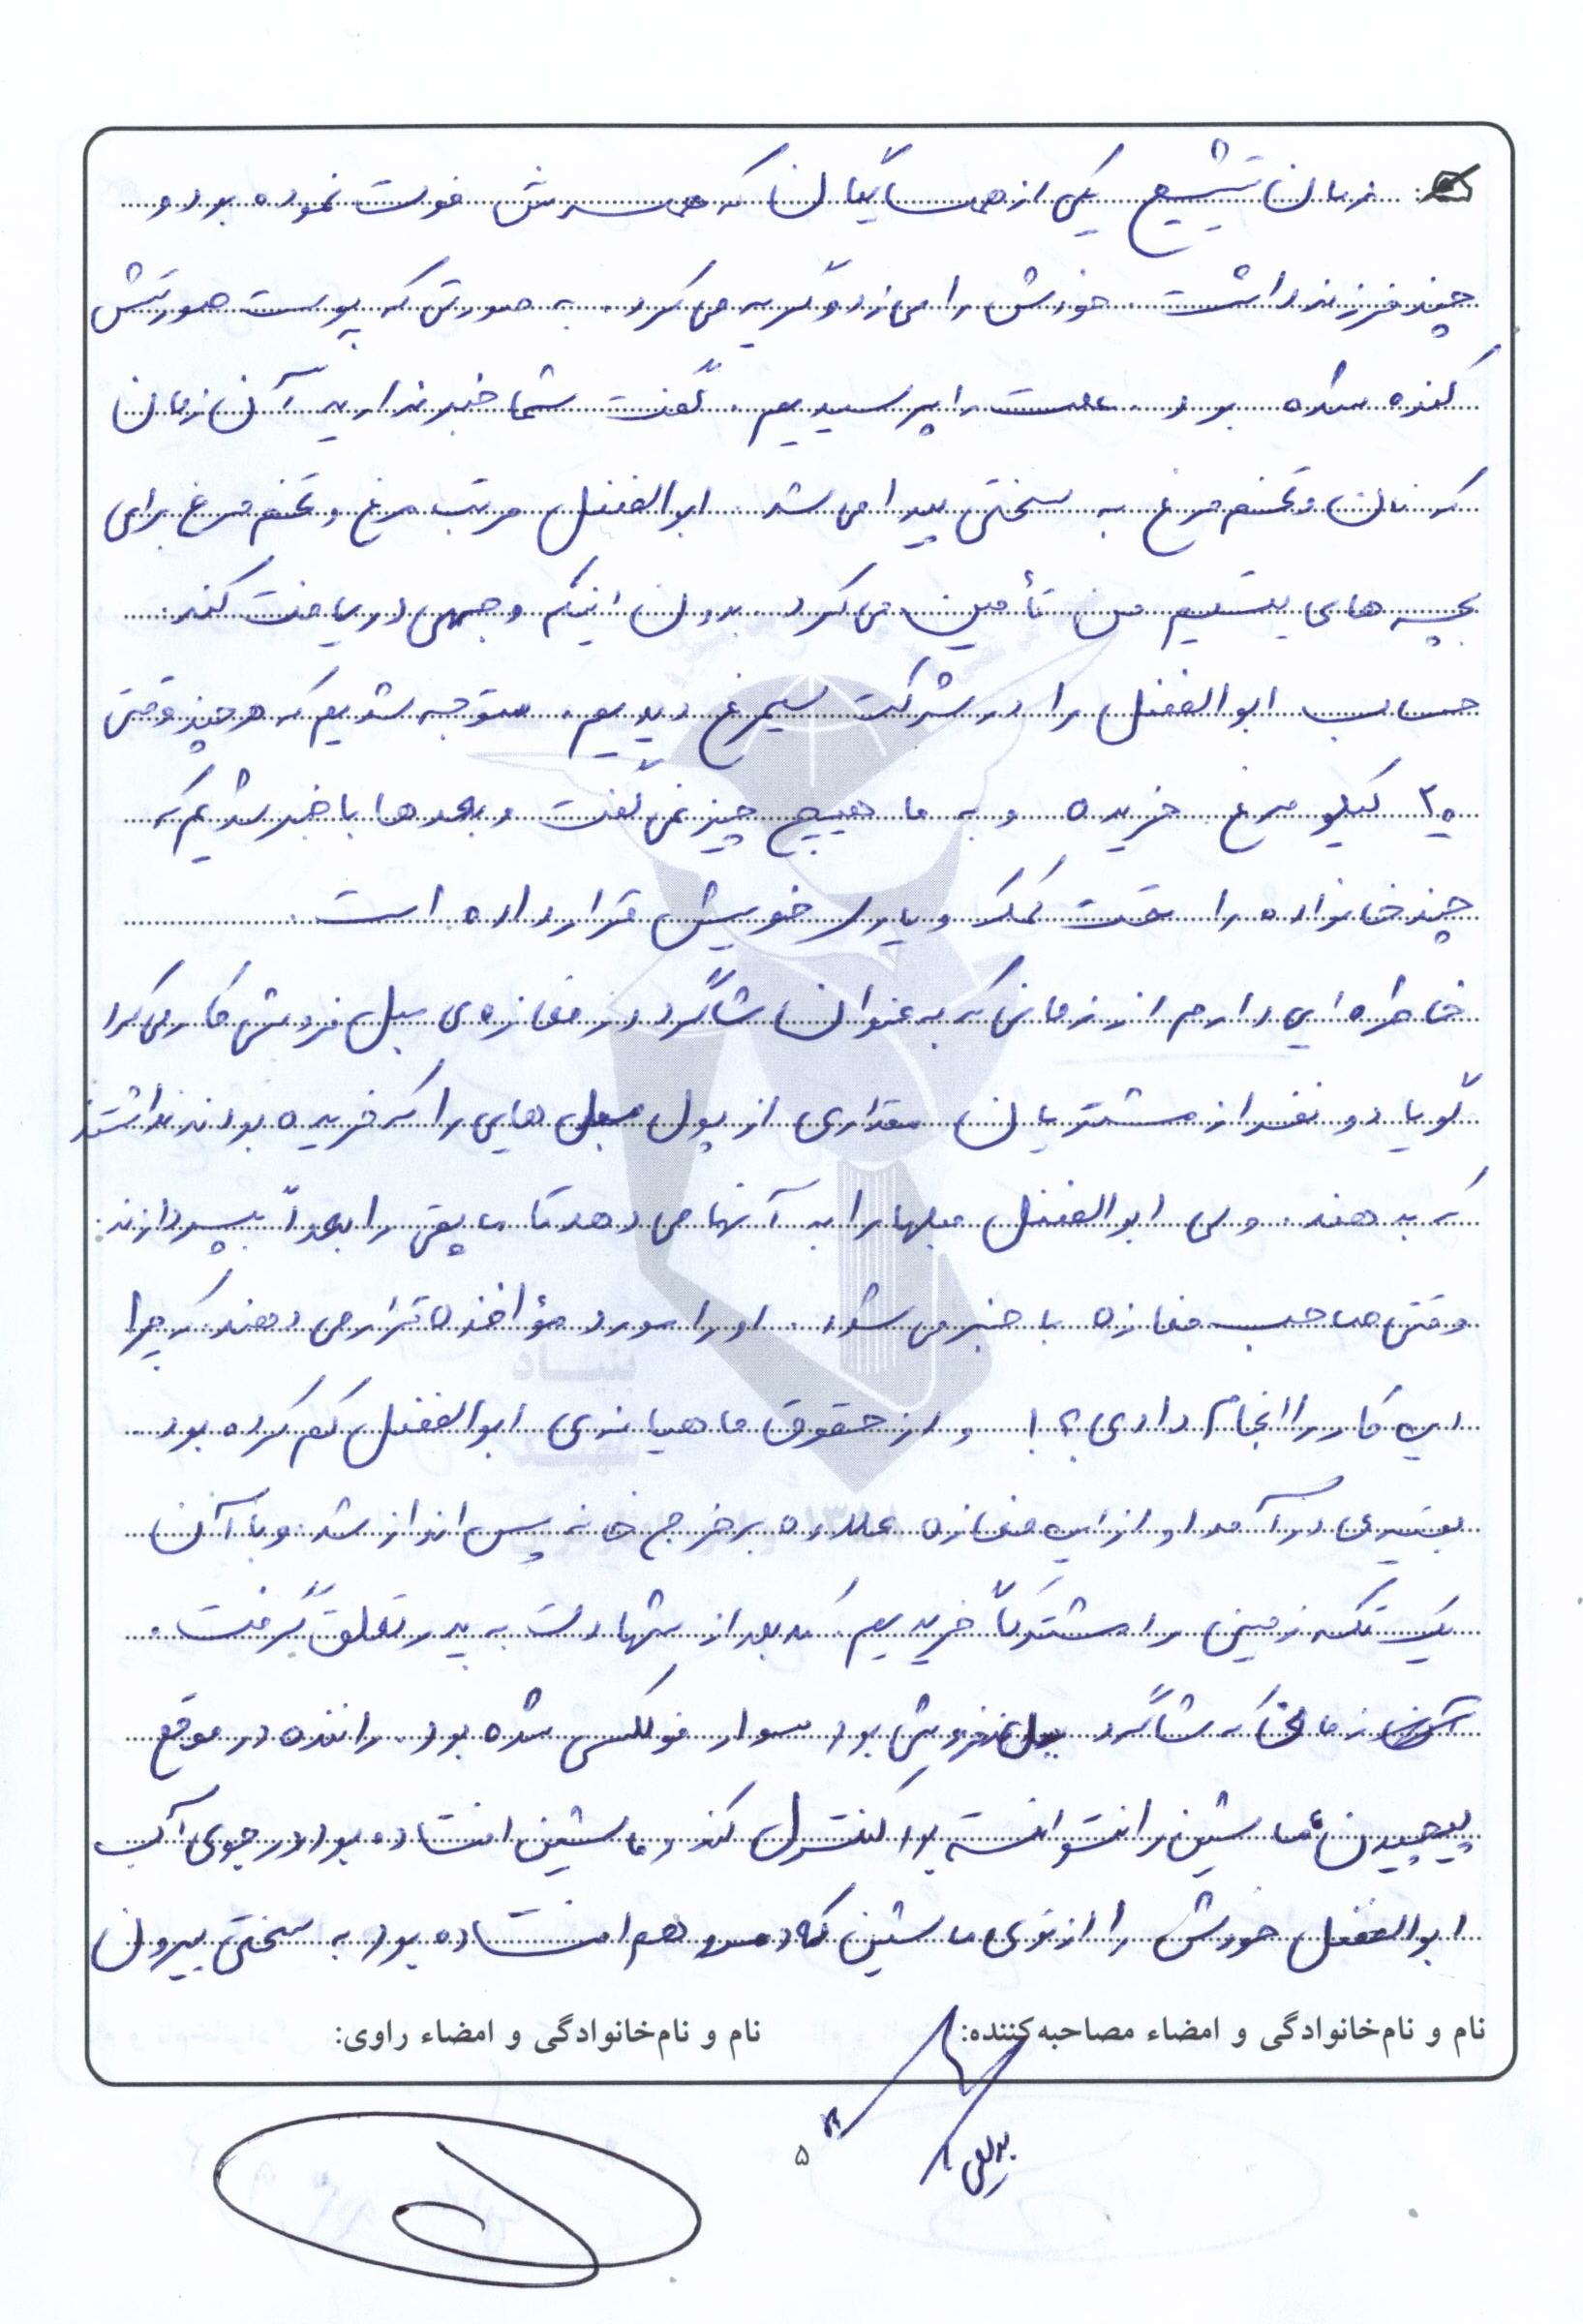 زمان تشییع یکی از همسایگان که همسرش فوت نموده بود و
چند فرزند داشت. خودش را می زد و گریه می کرد. به صورتی که پوست صورتش
کنده شده بود. علت را پرسیدیم. گفت شما خبر ندارید آن زمان
که نان و تخم مرغ به سختی پیدا می شد. ابوالفضل مرتب مرغ و تخم مرغ برای
بچه های یتیم من تأمین می کرد. بدون اینکه وجهی دریافت کند.
حساب ابوالفضل را در شرکت سیمرغ دیدیم. متوجه شدیم که هر چند وقتی
۲۰ کیلو مرغ خریده و به ما هیچ چیز نمی گفت و بعدها با خبر شدیم که
چند خانواده را تحت کمک و یاری خویش قرار داده است.
خاطره ایی دارم از زمانی که به عنوان شاگرد در مغازه ی مبل فروشی کار می کرد
گویا دو نفر از مشتریان مقداری از پول مبل هایی را که خریده بودند نداشتند
که بدهند. ولی ابوالفضل مبلها را به آنها می دهد تا مابقی را بعداً بپردازند.
وقتی صاحب مغازه با خبر می شود. او را مورد مؤاخذه قرار می دهند که چرا
این کار را انجام دادی؟! و از حقوق ماهیانه ی ابوالفضل کم کرده بود.
بقیه ی درآمد او از این مغازه علاوه بر خرج خانه پس انداز شد. و با آن
یک تکه زمین را مشترکاً خریدیم. که بعد از شهادت به پدر تعلق گرفت.
آن زمان که شاگرد مبل فروشی بود سوار فولکسی شده بود. راننده در موقع
پیچیدن ماشین را نتوانسته بود کنترل کند و ماشین افتاده بود در جوی آب
ابوالفضل خودش را از توی ماشین که دمر هم افتاده بود به سختی بیرون
نام و نام‌خانوادگی و امضاء مصاحبه‌کننده:
نام و نام‌خانوادگی و امضاء راوی:
۵